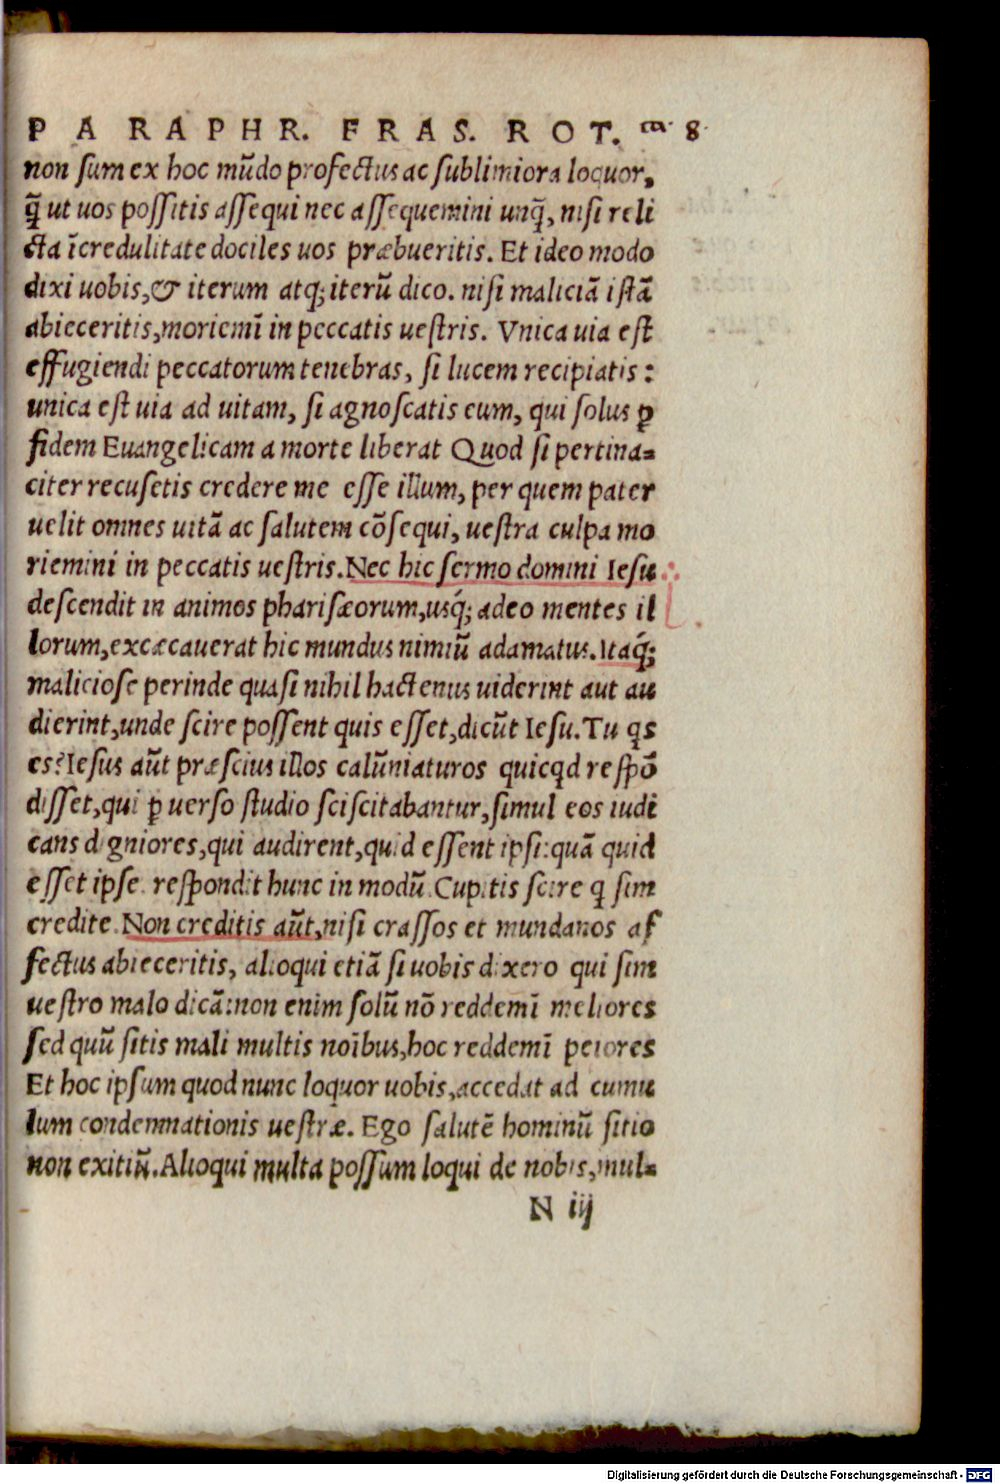 PARAPHR. FRAS. ROT. ca. 8.
non sum ex hoc mūdo profectus ac sublimiora loquor,
q̄ ut uos possitis assequi nec assequemini unq̄, nisi reli
cta īcredulitate dociles uos præbueritis. Et ideo modo
dixi uobis, & iterum atq; iterū dico. nisi maliciā istā
abieceritis, moriemī in peccatis uestris. Vnica uia est
effugiendi peccatorum tenebras, si lucem recipiatis:
unica est uia ad uitam, si agnoscatis eum, qui solus ꝑ
fidem Euangelicam a morte liberat Quod si pertina=
citer recusetis credere me esse illum, per quem pater
uelit omnes uitā ac salutem cōsequi, uestra culpa mo
riemini in peccatis uestris. Nec hic sermo domini Iesu
descendit in animos pharisæorum, usq́; adeo mentes il
lorum, excæcauerat hic mundus nimiū adamatus. Itaq́;
maliciose perinde quasi nihil hactenus uiderint aut au
dierint, unde scire possent quis esset, dicūt Iesu. Tu qs
es? Iesus aūt præscius illos calūniaturos quicqd respō
disset, qui ꝑ uerso studio sciscitabantur, simul eos iudi
cans digniores, qui audirent, quid essent ipsi: quā quid
esset ipse. respondit hunc in modū. Cupitis scire q̄ sim
credite. Non creditis aūt, nisi crassos et mundanos af
fectus abieceritis, alioqui etiā si uobis dixero qui sim
uestro malo dicā: non enim solū nō reddemī meliores
sed quū sitis mali multis noībus, hoc reddemī peiores
Et hoc ipsum quod nunc loquor uobis, accedat ad cumu
lum condemnationis uestræ. Ego salutē hominū sitio
non exitiū. Alioqui multa possum loqui de nobis, mul=
N iij
Digitalisierung gefördert durch die Deutsche Forschungsgemeinschaft - DFG